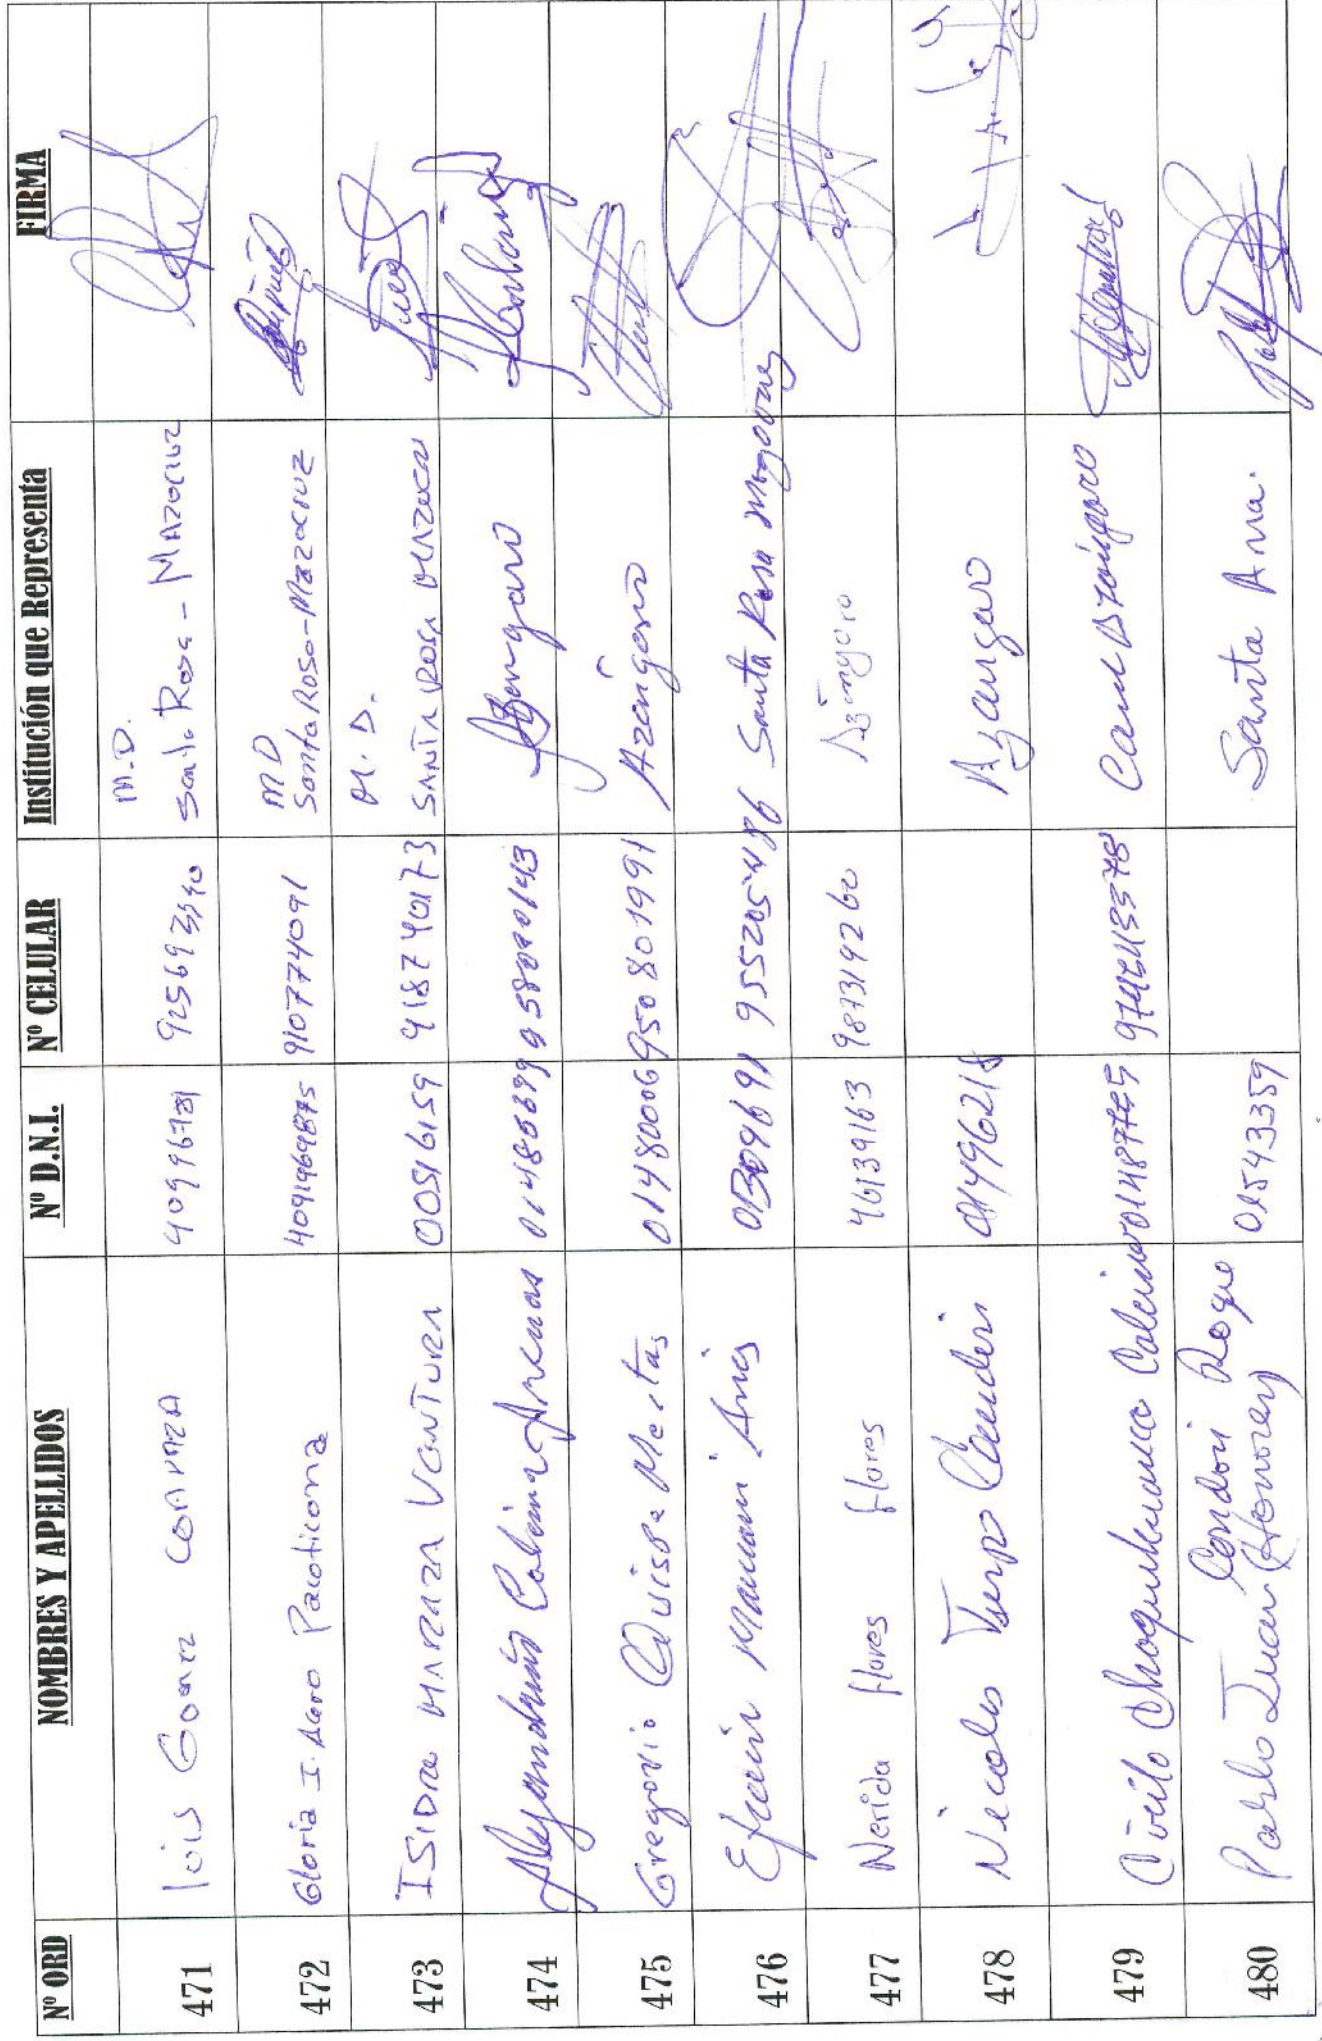 Nº ORD NOMBRES Y APELLIDOS Nº D.N.I. Nº CELULAR Institución que Representa FIRMA
471 Luis Gomez CONDORI 40996781 925693590 M.D. Santa Rosa - MAZOCRUZ
472 Gloria I. Acero Pacoticona 4091969875 910774091 MD Santa Rosa-Mazocruz
473 ISIDRO MARAZA VENTURA 00516159 918740173 M.D. SANTA ROSA MAZOCRUZ
474 Alejandrino Calcina Arenas 01485699 Azangaro
475 Gregorio Quispe Mestas 01480006 950801991 Azángaro
476 Efrain Mamani Arias 01309691 955205486 Santa Rosa
477 Nerida flores flores 46139163 987319260 Azángaro
478 Nicolas Turpo Condori 01496218 Azangaro
479 Cirilo Choquehuanca Calcina 01487755
480 Pablo Juan Condori Roque 01543359 Santa Ana.